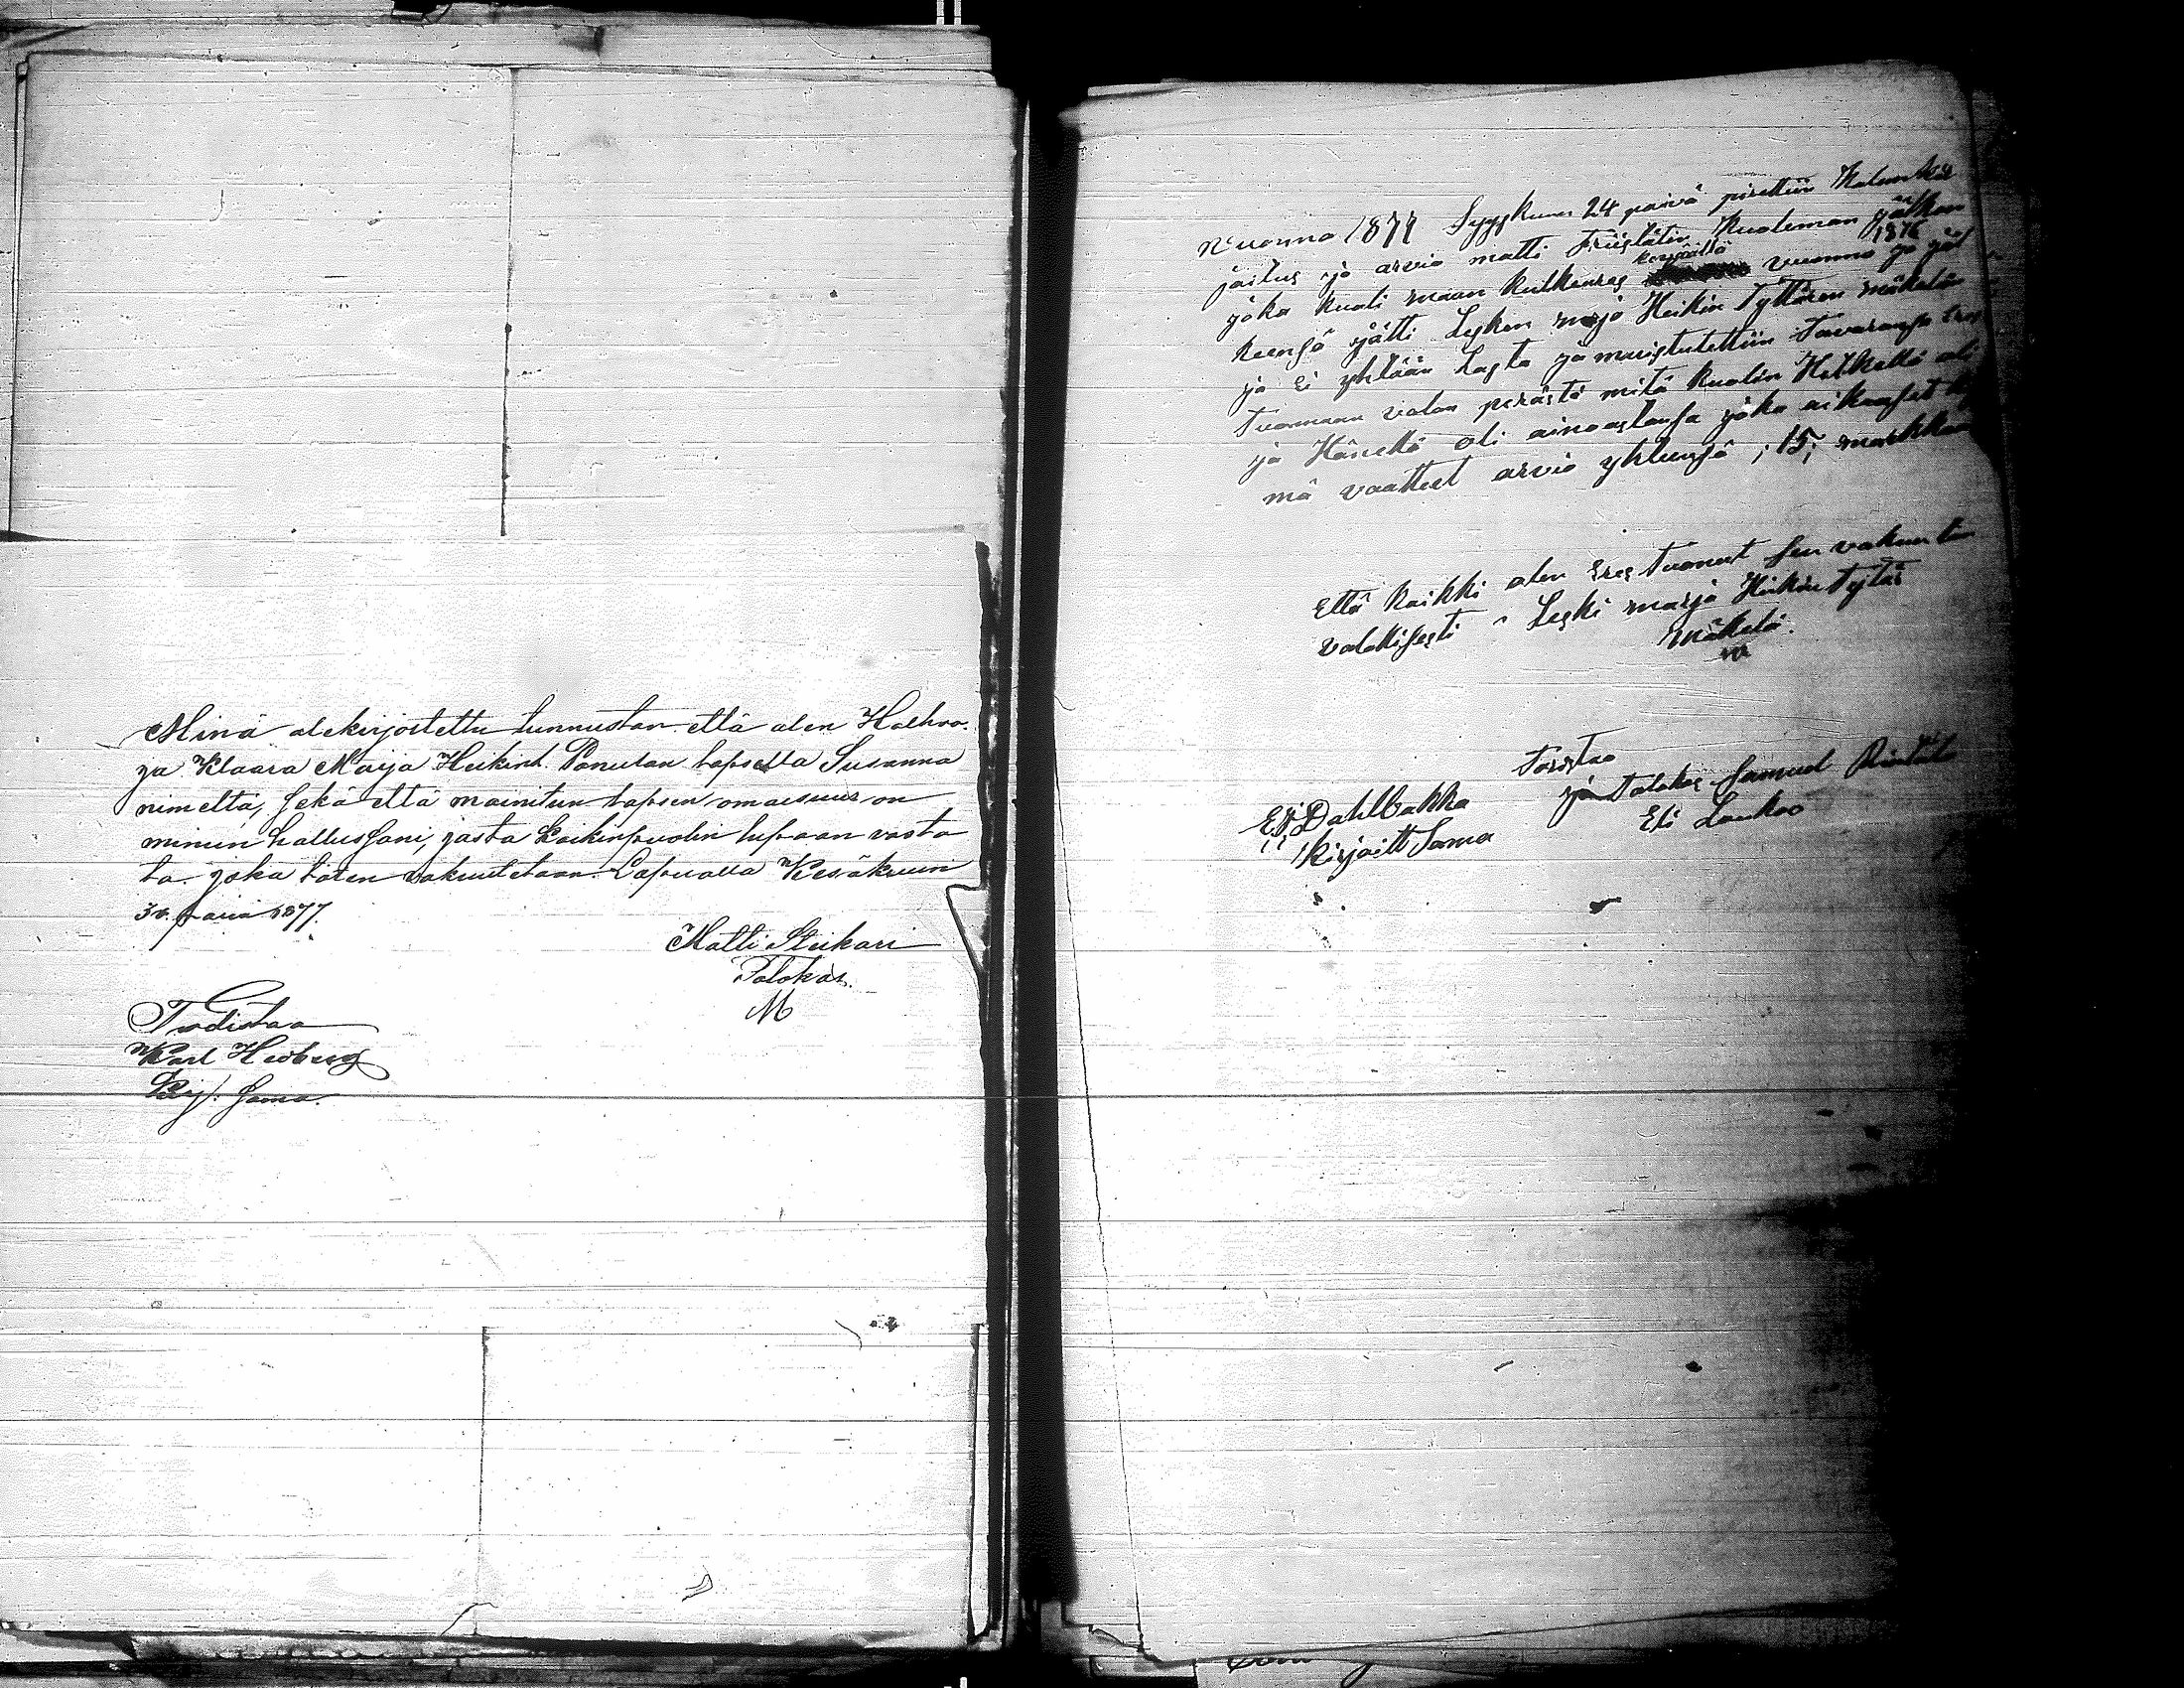 Minä alekirjoitettu tunnustan että olen Holhoo-
ja Klaara Maija Heikint. Panulan lapsella Susanna
nimeltä, sekä että mainitun lapsen omaisuus on
minun hallussani, josta kaikinpuolin lupaan vasta
ta. joka täten vakuutetaan. Lapualla Kesäkuun
30. päiv 1877.
Matti Steikari
Talokas.
M
Todistaa
Karl Hedberg
Kirj. Sama.
Vuonna 1877 Syyskuun 24 päivä pirettiin Kalunkir
joitus ja arvio matti Friistätin Kuoleman jälken
joka kuoli maan kulkeures kesäällä vuonna 1876 ja jäl
keensä jätti Lesken marja Heikin Tyttären mäkelän
ja ei yhtään Lasta ja muistutettiin Tavaransa Eres
Tuomaan valan perästä mitä kuolin Hetkellä oli
ja Hänellä oli ainoastansa joka aikaaset
mä vaatteet arvio yhteensä ; 15; markkaa
Että kaikki olen Eres Tuonut sen vakuutan
valallisesti Leski marja Heikin Tytär
mäkelä.
Toristaa
E J Dahlbakka
Kirjoitt Sama
ja Talokas Samuel Rintala
Eli Laukoo